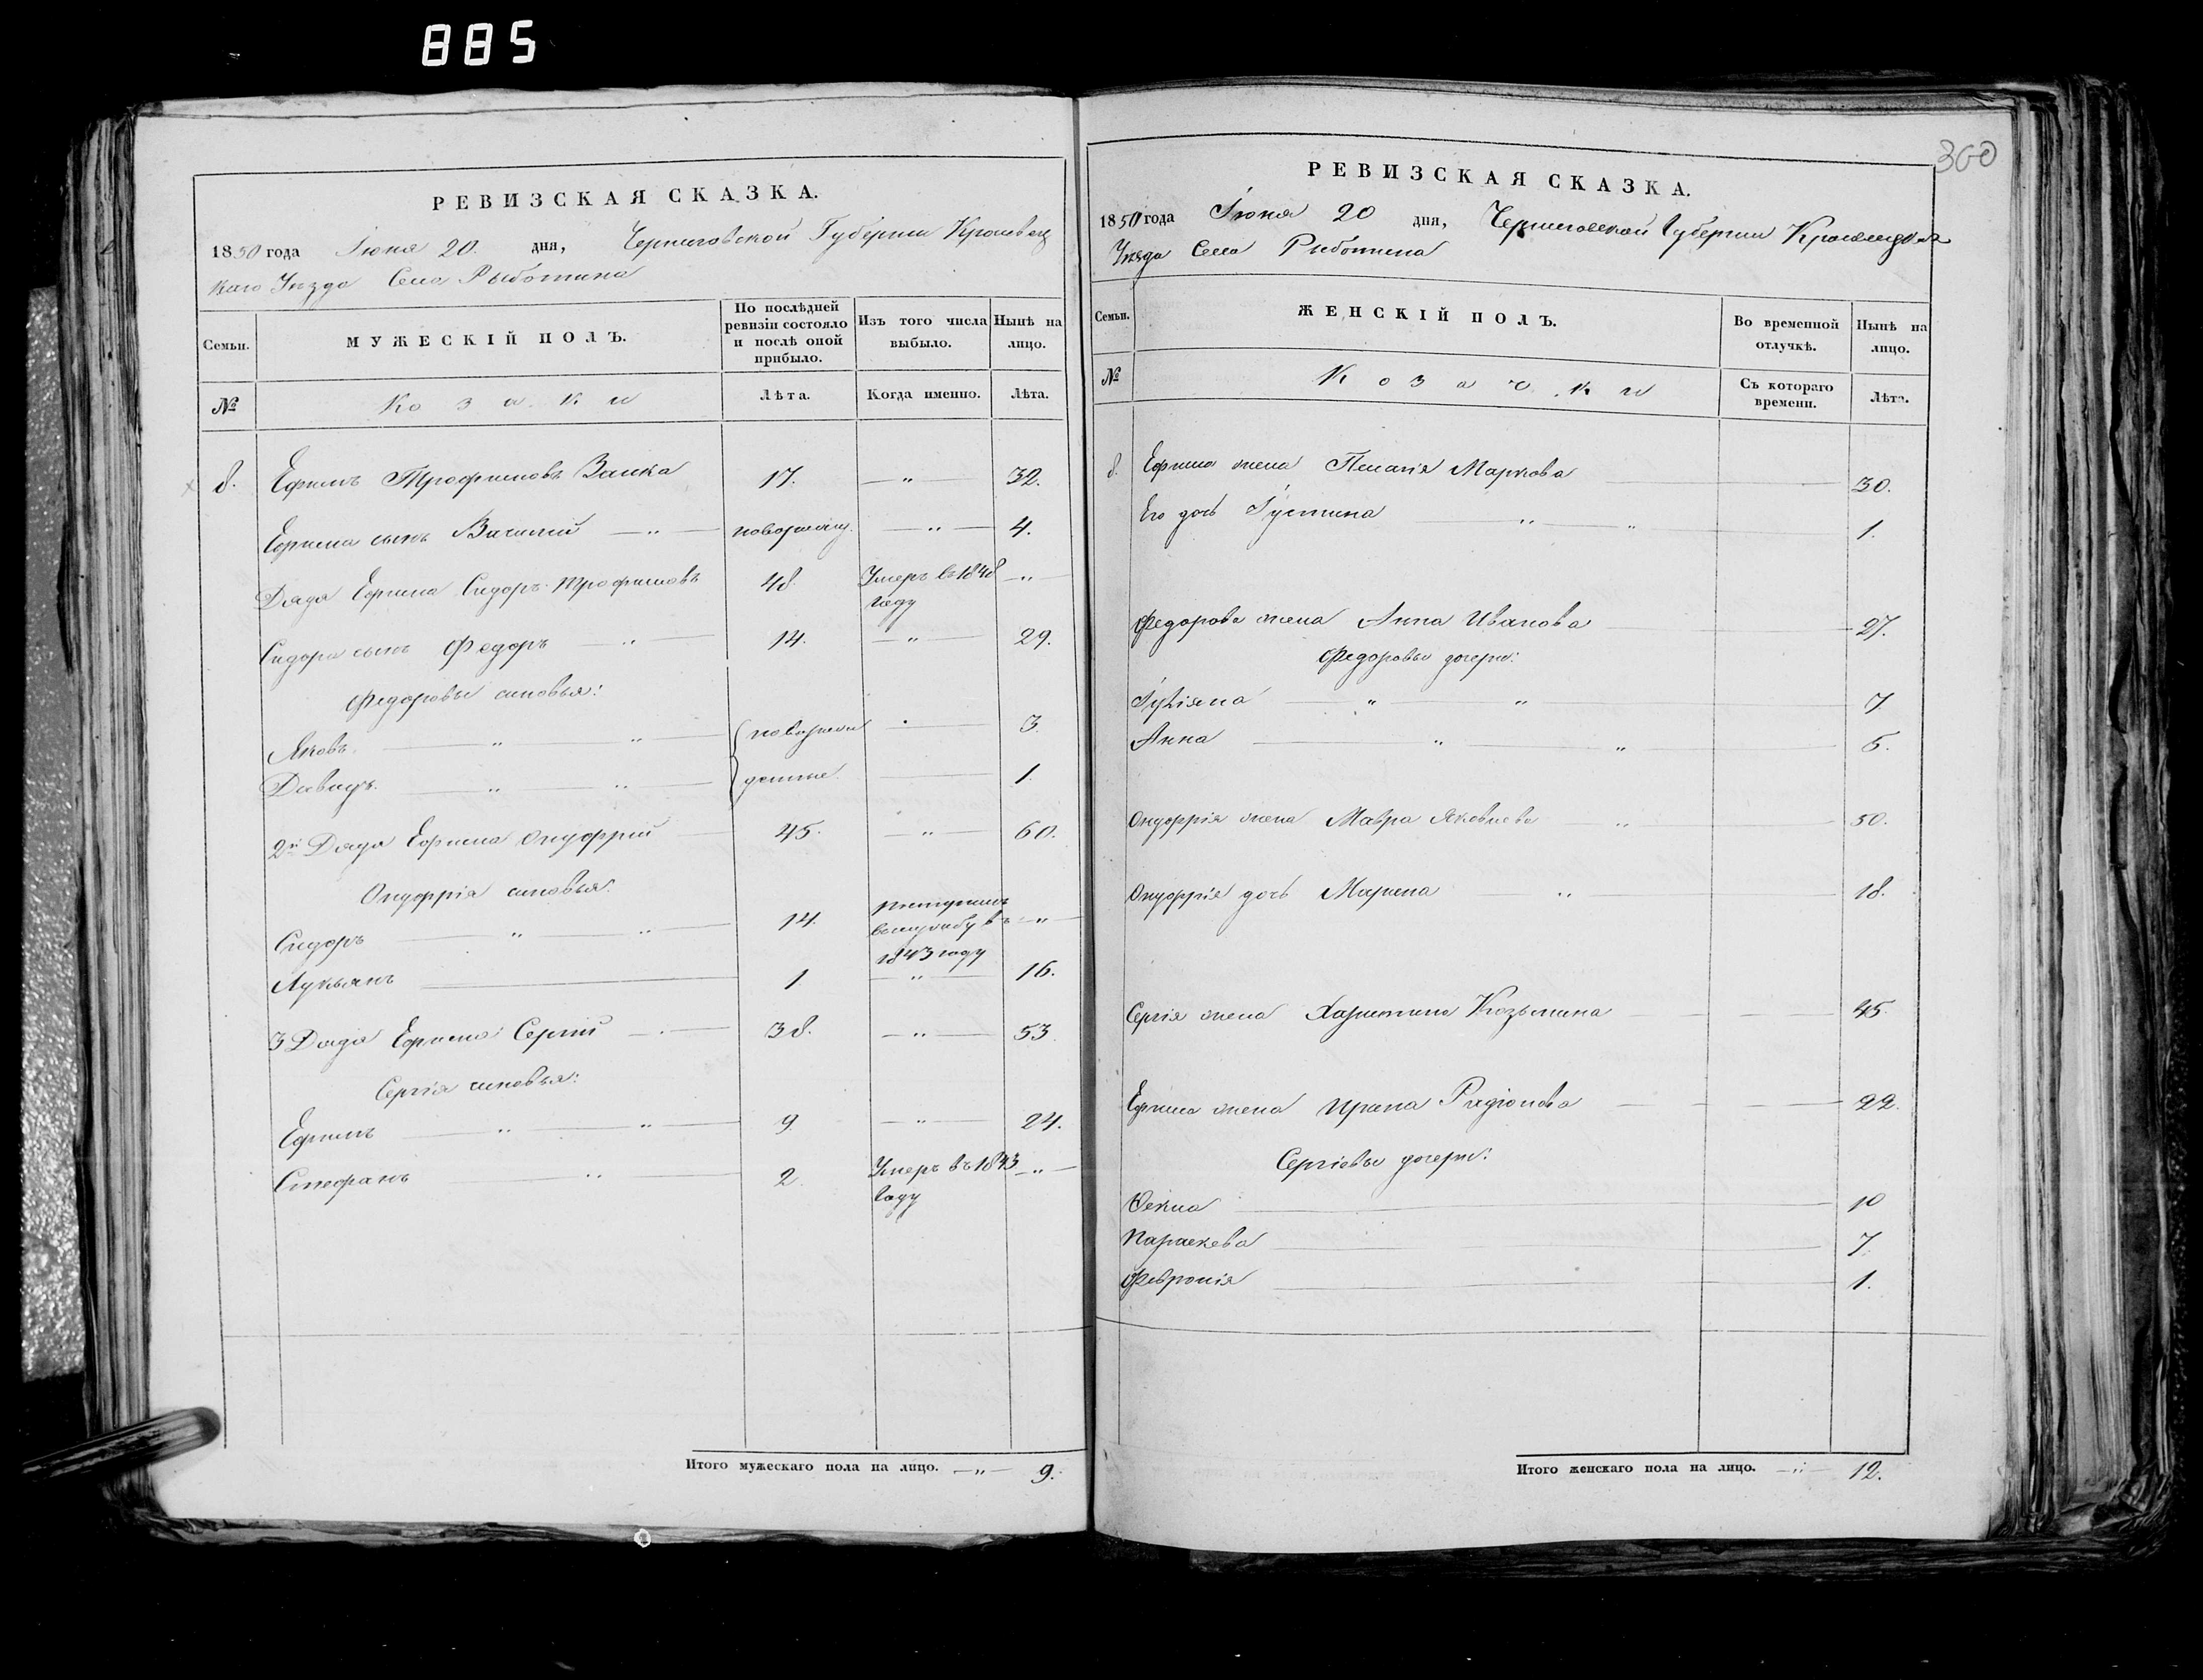 885
РЕВИЗСКАЯ СКАЗКА.
1850 года Іюня 20. дня, Черниговской Губерніи Кролевец
каго Уѣзда Села Рыботина
Семьи.
МУЖЕСКІЙ ПОЛЪ.
По послѣдней ревизіи состояло и послѣ оной прибыло.
Изъ того числа выбыло.
Нынѣ на лицо.
№
Козаки
Лѣта.
Когда именно.
Лѣта.
8. Ефимъ Трофимовъ Заика 17. — " — 32.
Ефима сынъ Василій — " — новорожд. — " — 4.
Дядя Ефима Сидоръ Трофимовъ 48. Умеръ въ 1848 — " —
году
Сидора сынъ Федоръ — " 14. — " — 29.
Федоровы сыновья:
Яковъ. — " — " — новорож 3.
Давидъ. — " — " — денные. — 1.
2й Дядя Ефима Онуфрій 45. — " — 60.
Онуфрія сыновья:
Сидоръ — " — " — 14. поступилъ
въ службу въ — " —
1843 году
Лукьянъ — 1 — " — 16.
3 Дядя Ефима Сергій — 38. — " — 53.
Сергія сыновья:
Ефимъ — " — " — 9. — " — 24.
Стефанъ — " — 2. Умеръ въ 1843 — " —
году
Итого мужескаго пола на лицо. — " — 9.
360
РЕВИЗСКАЯ СКАЗКА.
1850 года Іюня 20 дня, Черниговской Губерніи
Уѣзда Села Рыботина
Семьи.
ЖЕНСКІЙ ПОЛЪ.
Во временной отлучкѣ.
Нынѣ на лицо.
№
Козачки
Съ котораго времени.
Лѣта.
8. Ефима жена Пелагія Маркова — 30.
Его дочь Іустина " " 1.
Федорова жена Анна Иванова — 27.
Федоровы дочери:
Іуліяна — " — " — 7
Анна — " — " — 5.
Онуфрія жена Мавра Яковлева " — 50.
Онуфрія дочь Марина — " — 18.
Сергія жена Харитина Козьмина — 45.
Ефима жена Ирина Радіонова — 22.
Сергіевы дочери:
— 10
Параскева — 7.
Февронія — 1.
Итого женскаго пола на лицо. — " — 12.